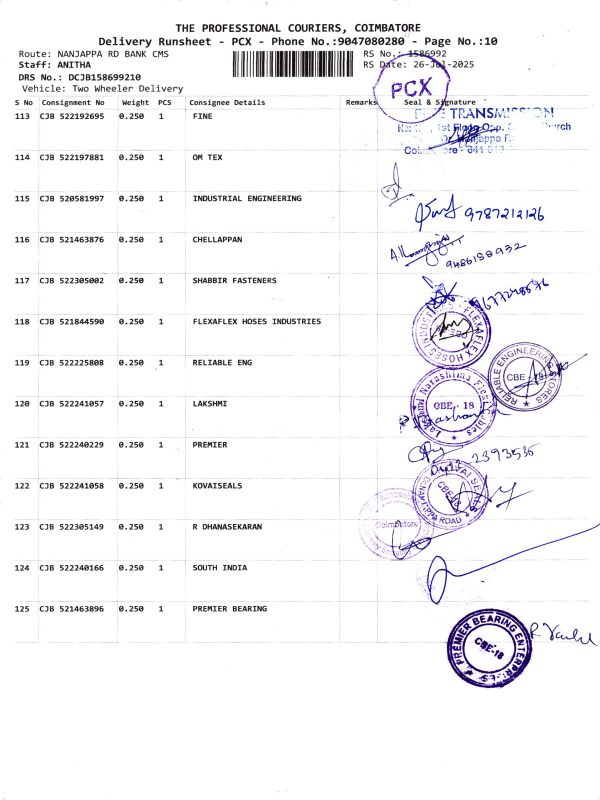 THE PROFESSIONAL COURIERS, COIMBATORE
Delivery Runsheet - PCX - Phone No.:9047080280 - Page No.:10
Route: NANJAPPA RD BANK CMS
RS No.: 1586992
Staff: ANITHA
RS Date: 26-Jul-2025
DRS No.: DCJB158699210
Vehicle: Two Wheeler Delivery
PCX
S No Consignment No Weight PCS Consignee Details Remarks Seal & Signature
113 CJB 522192695 0.250 1 FINE
TRANSMISSION
114 CJB 522197881 0.250 1 OM TEX
115 CJB 520581997 0.250 1 INDUSTRIAL ENGINEERING
9787212126
116 CJB 521463876 0.250 1 CHELLAPPAN
9486188932
117 CJB 522305002 0.250 1 SHABBIR FASTENERS
9677248576
118 CJB 521844590 0.250 1 FLEXAFLEX HOSES INDUSTRIES
FLEXAFLEX HOSES INDUSTRIES
119 CJB 522225808 0.250 1 RELIABLE ENG
RELIABLE ENGINEERING STORES
CBE - 18
120 CJB 522241057 0.250 1 LAKSHMI
CBE - 18
121 CJB 522240229 0.250 1 PREMIER
2393535
122 CJB 522241058 0.250 1 KOVAISEALS
123 CJB 522305149 0.250 1 R DHANASEKARAN
Coimbatore
124 CJB 522240166 0.250 1 SOUTH INDIA
125 CJB 521463896 0.250 1 PREMIER BEARING
PREMIER BEARING ENTERPRISES
CBE-18